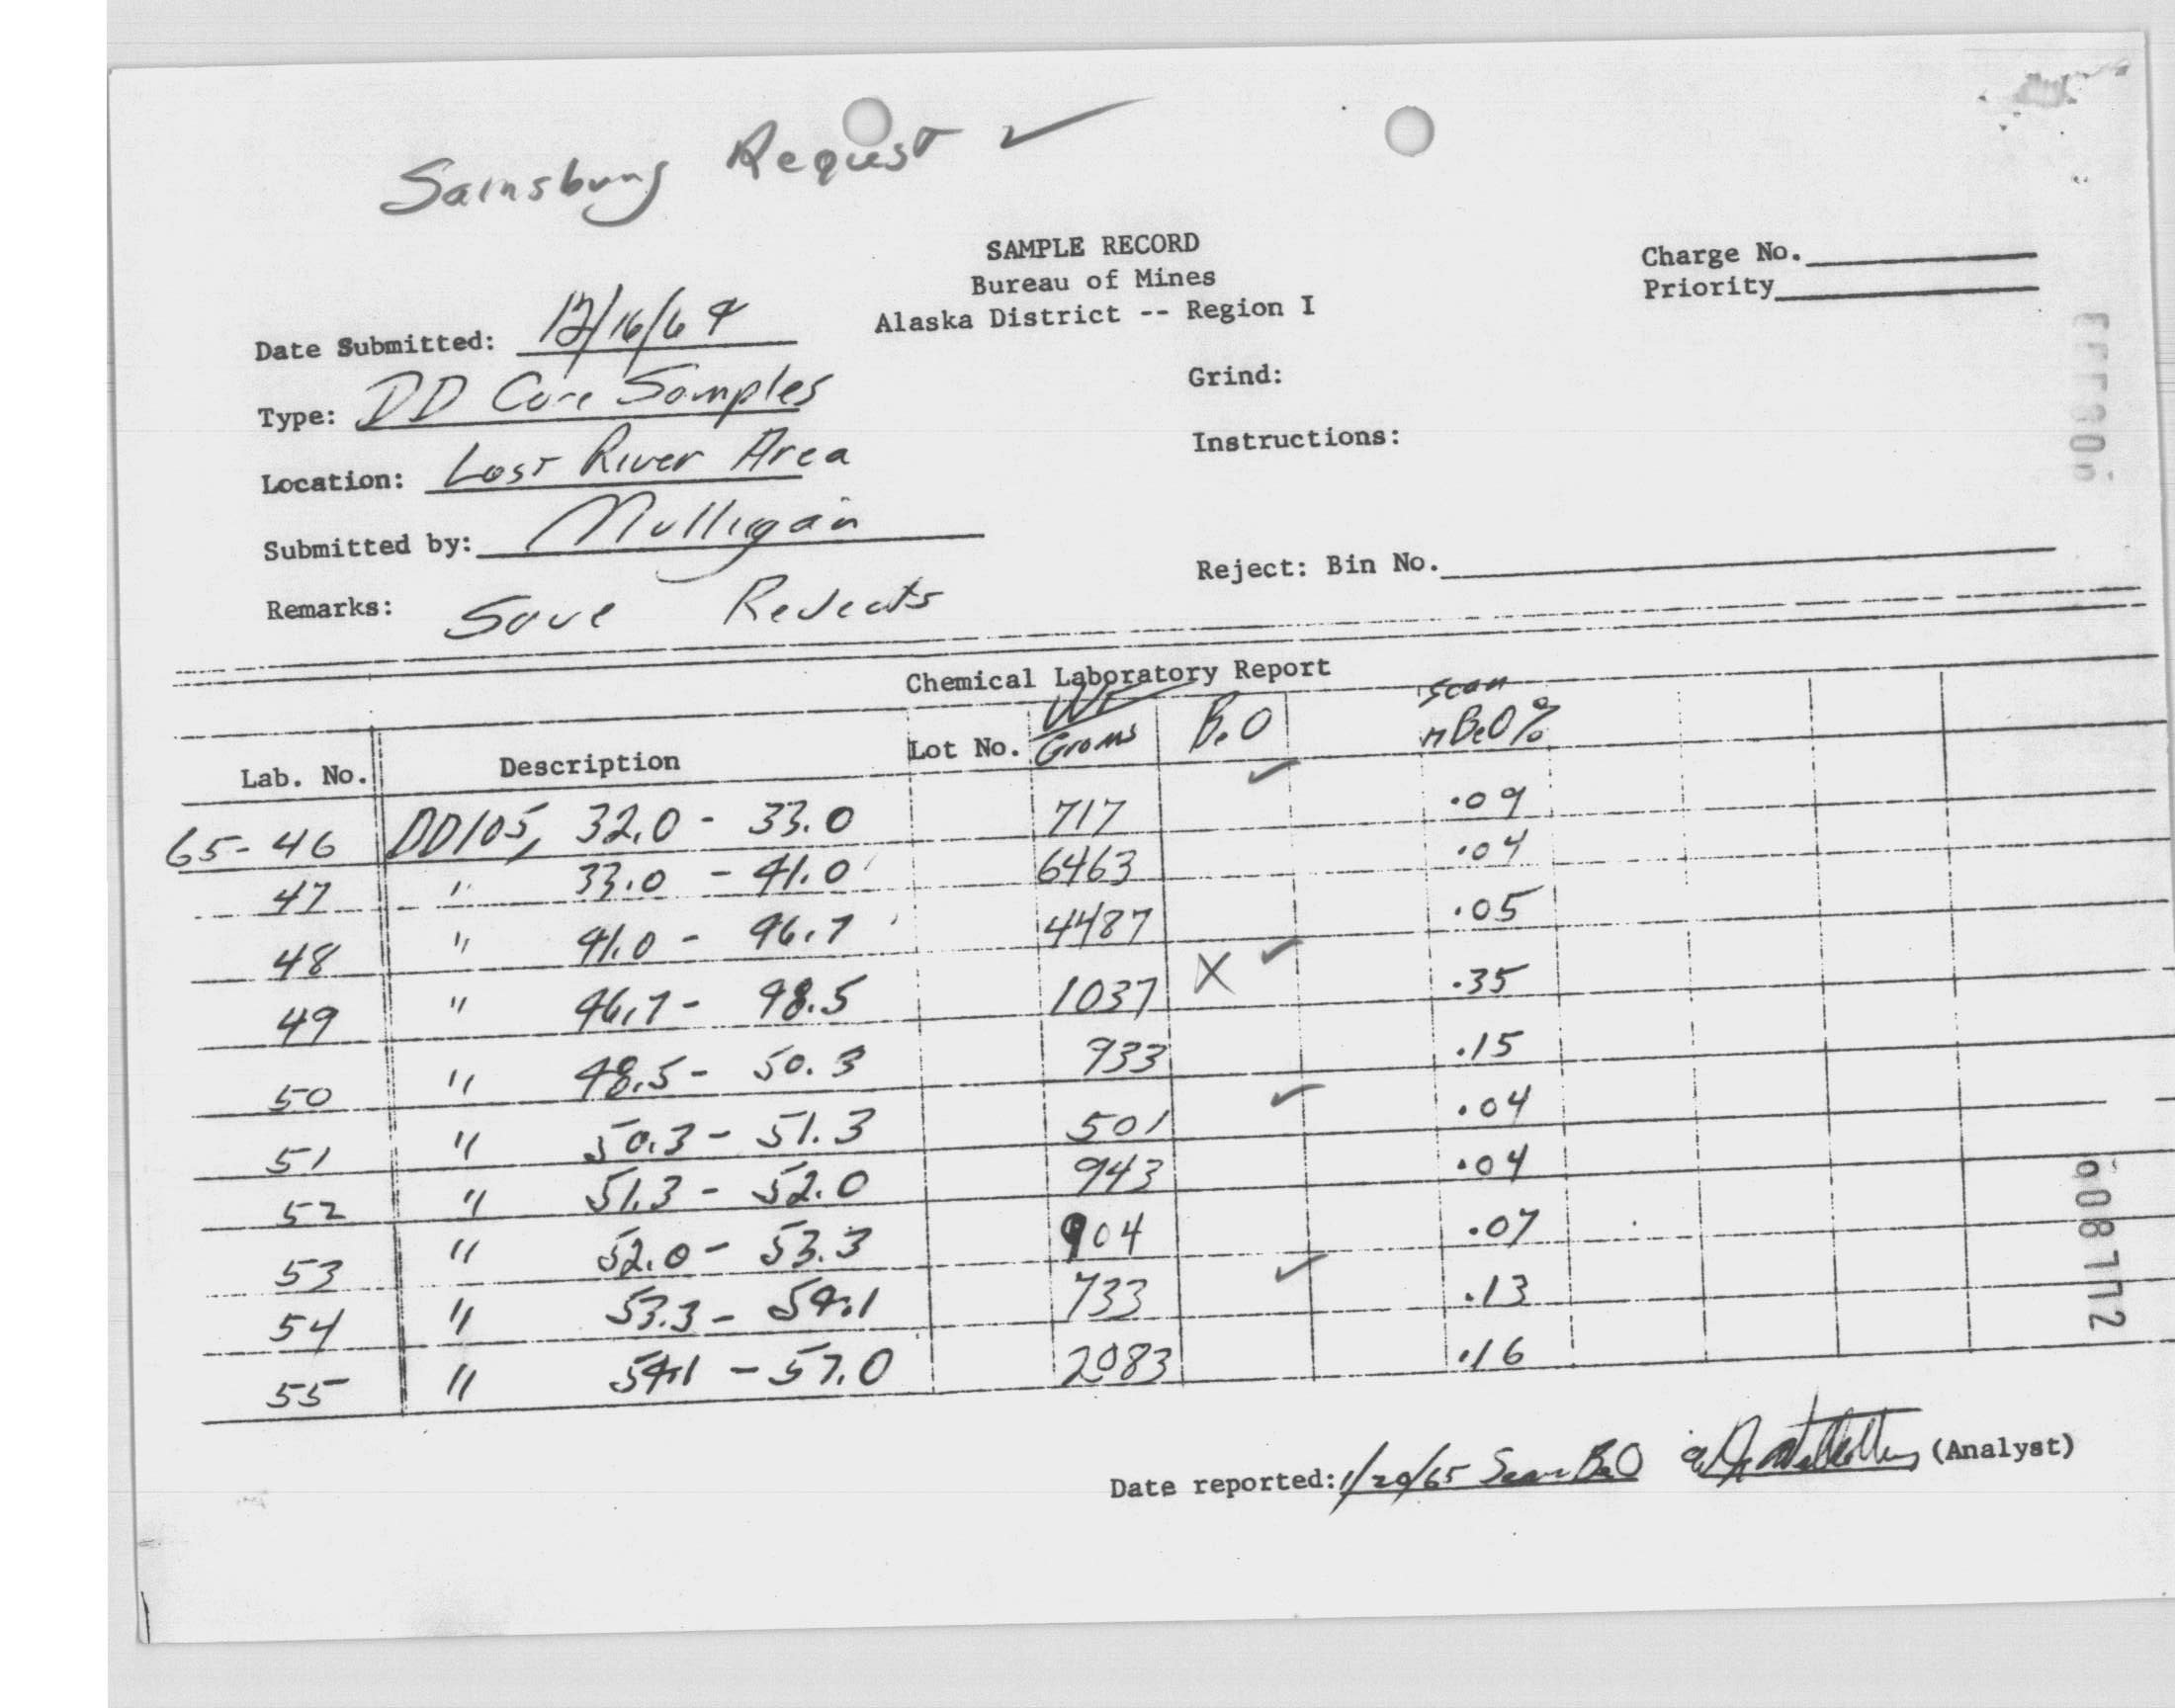 Sainsbury Request ✓
SAMPLE RECORD
Bureau of Mines
Alaska District -- Region I
Charge No.
Priority
Date Submitted: 12/16/64
Type: DD Core Samples
Location: Lost River Area
Submitted by: Mulligan
Remarks: Save Rejects
Grind:
Instructions:
Reject: Bin No.
Chemical Laboratory Report
Lab. No. Description Lot No. Wt Grams BeO scan nBeO%
65-46 DD105, 32.0 - 33.0 717 ✓ .09
47 " 33.0 - 41.0 6463 .04
48 " 41.0 - 46.7 4487 .05
49 " 46.7 - 48.5 1037 X ✓ .35
50 " 48.5 - 50.3 933 .15
51 " 50.3 - 51.3 501 ✓ .04
52 " 51.3 - 52.0 943 .04
53 " 52.0 - 53.3 904 .07
54 " 53.3 - 54.1 733 ✓ .13
55 " 54.1 - 57.0 2083 .16
Date reported: 1/20/65 Scan BeO (Analyst)